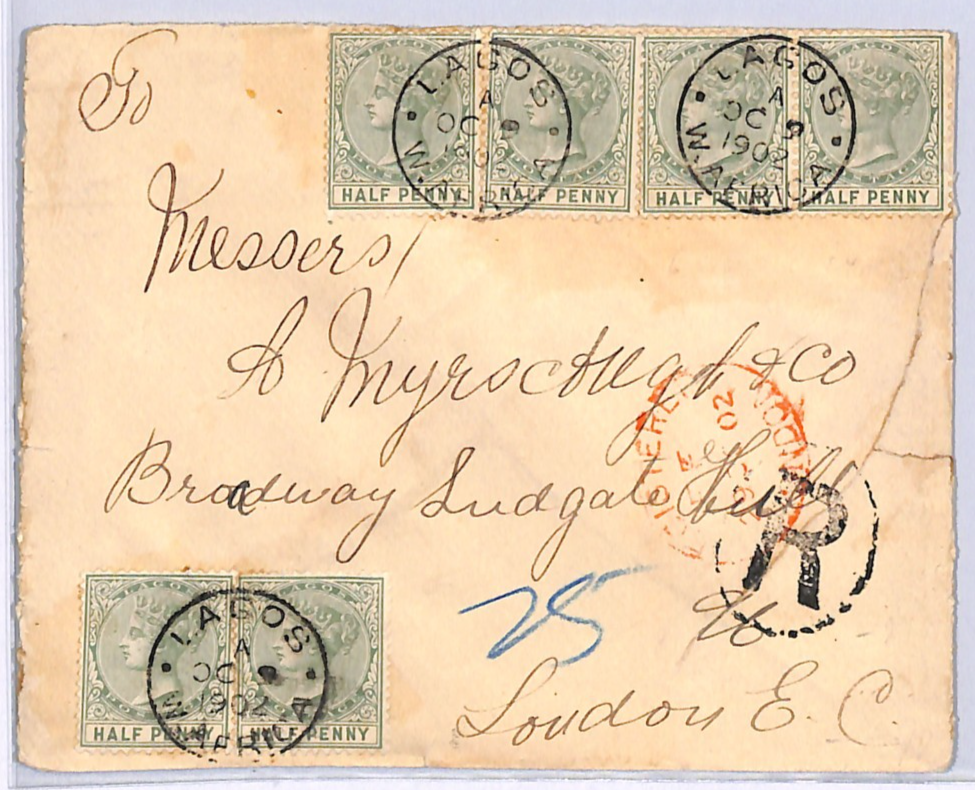 To
LAGOS
A
OC 9
1902
W. AFRICA
LAGOS
A
OC 9
1902
W. AFRICA
HALF PENNY
HALF PENNY
HALF PENNY
HALF PENNY
Messers/
A & Co
Broadway Ludgate Hill
LONDON
02
R
25
London E. C.
LAGOS
A
OC 9
1902
W. AFRICA
HALF PENNY
HALF PENNY